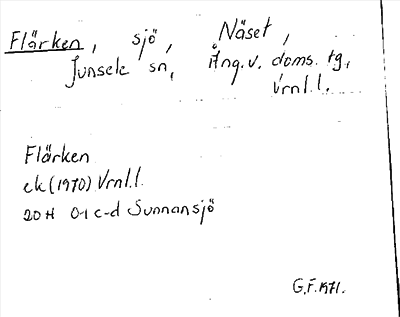 Flärken, sjö, Näset,
Junsele sn, Ång.v. doms. tg,
Vrnl.l.
Flärken
ek (1970) Vrnl.l.
20H 0-1 c-d Sunnansjö
G.F. 1971.